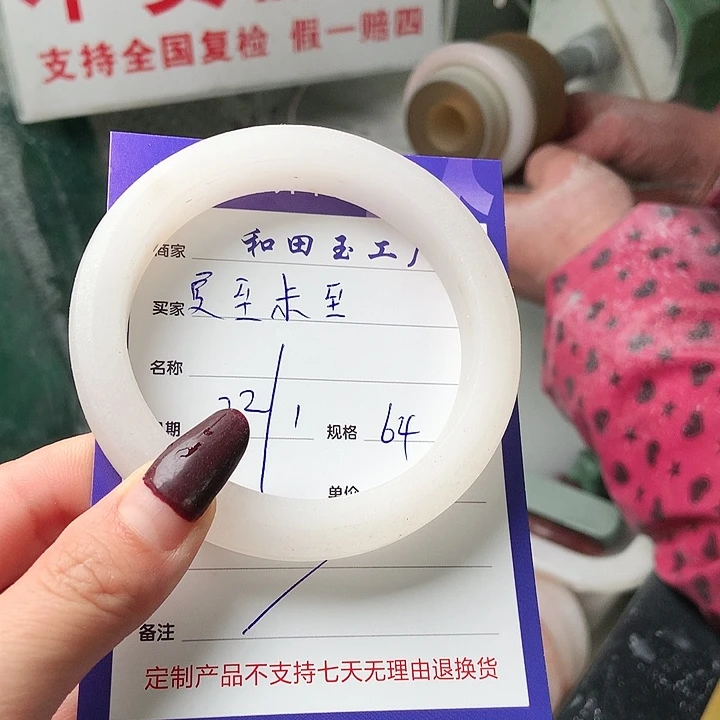 支持全国复检 假一赔四
商家 和田玉工厂
买家 夏至未至
名称
日期 22/1 规格 64
单价
备注
定制产品不支持七天无理由退换货